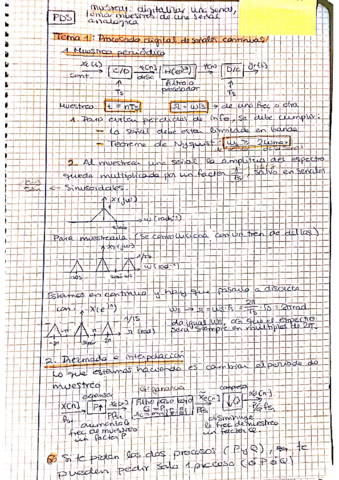 PDS
muestrear, digitalizar una señal,
toma muestras de una señal
analógica
Tema 1: Procesado digital de señales continuas
1. Muestreo periódico
x(t) → C/D → x[n] → H(e^jω) → y[n] → D/C → yr(t)
cont. disc
Ts Ts
Muestreo: t = nTs Ω = ωTs → de una frec a otra
1. Para evitar perdidas de info, se debe cumplir:
– La señal debe estar limitada en banda
– Teorema de Nyquist: ωs ≥ 2ωmax
2. Al muestrear una señal la amplitud del espectro
queda multiplicada por un factor 1/Ts, salvo en señales
sinusoidales.
X(jω)
ω (rad s⁻¹)
Para muestrearla (se convoluciona con un tren de deltas)
1/Ts
ω (rad s⁻¹)
Estamos en continua y hay que pasarlo a discreto
con: X(e^jΩ)
ωs → Ω = ωs·Ts = 2π/Ts · Ts = 2π rad
da igual ωs, así que el espectro
será siempre en múltiplos de 2π.
1/Ts
Ω (rad)
2. Diezmado e interpolación
Lo que estamos haciendo es cambiar el período de
muestreo
expansor G: ganancia compresor
x[n] → P↑ → Filtro paso bajo → ↓Q
aumenta la
frec de muestreo
un factor P
disminuye
la frec de muestreo
un factor Q
Si te piden los dos procesos (P y Q), te
pueden pedir solo 1 proceso (o P o Q)